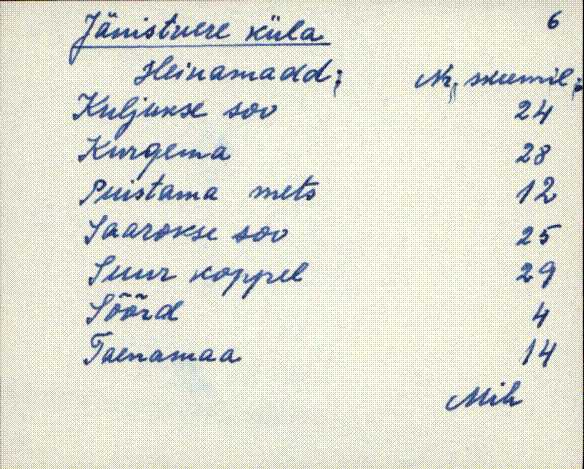 Jänistvere küla 6
Heinamadd; Nr, skeemil;
Kuljukse sov 24
Kurgema 28
Puistama mets 12
Saarokse sov 25
Suur koppel 29
Sõõrd 4
Taenamaa 14
Mih